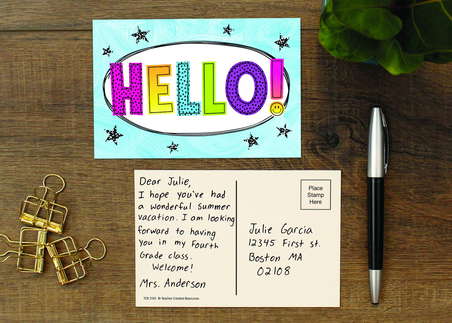 HELLO!
Dear Julie,
I hope you've had
a wonderful summer
vacation. I am looking
forward to having
you in my Fourth
Grade class.
Welcome!
Mrs. Anderson
Place
Stamp
Here
Julie Garcia
12345 First St.
Boston MA
02108
© Teacher Created Resources